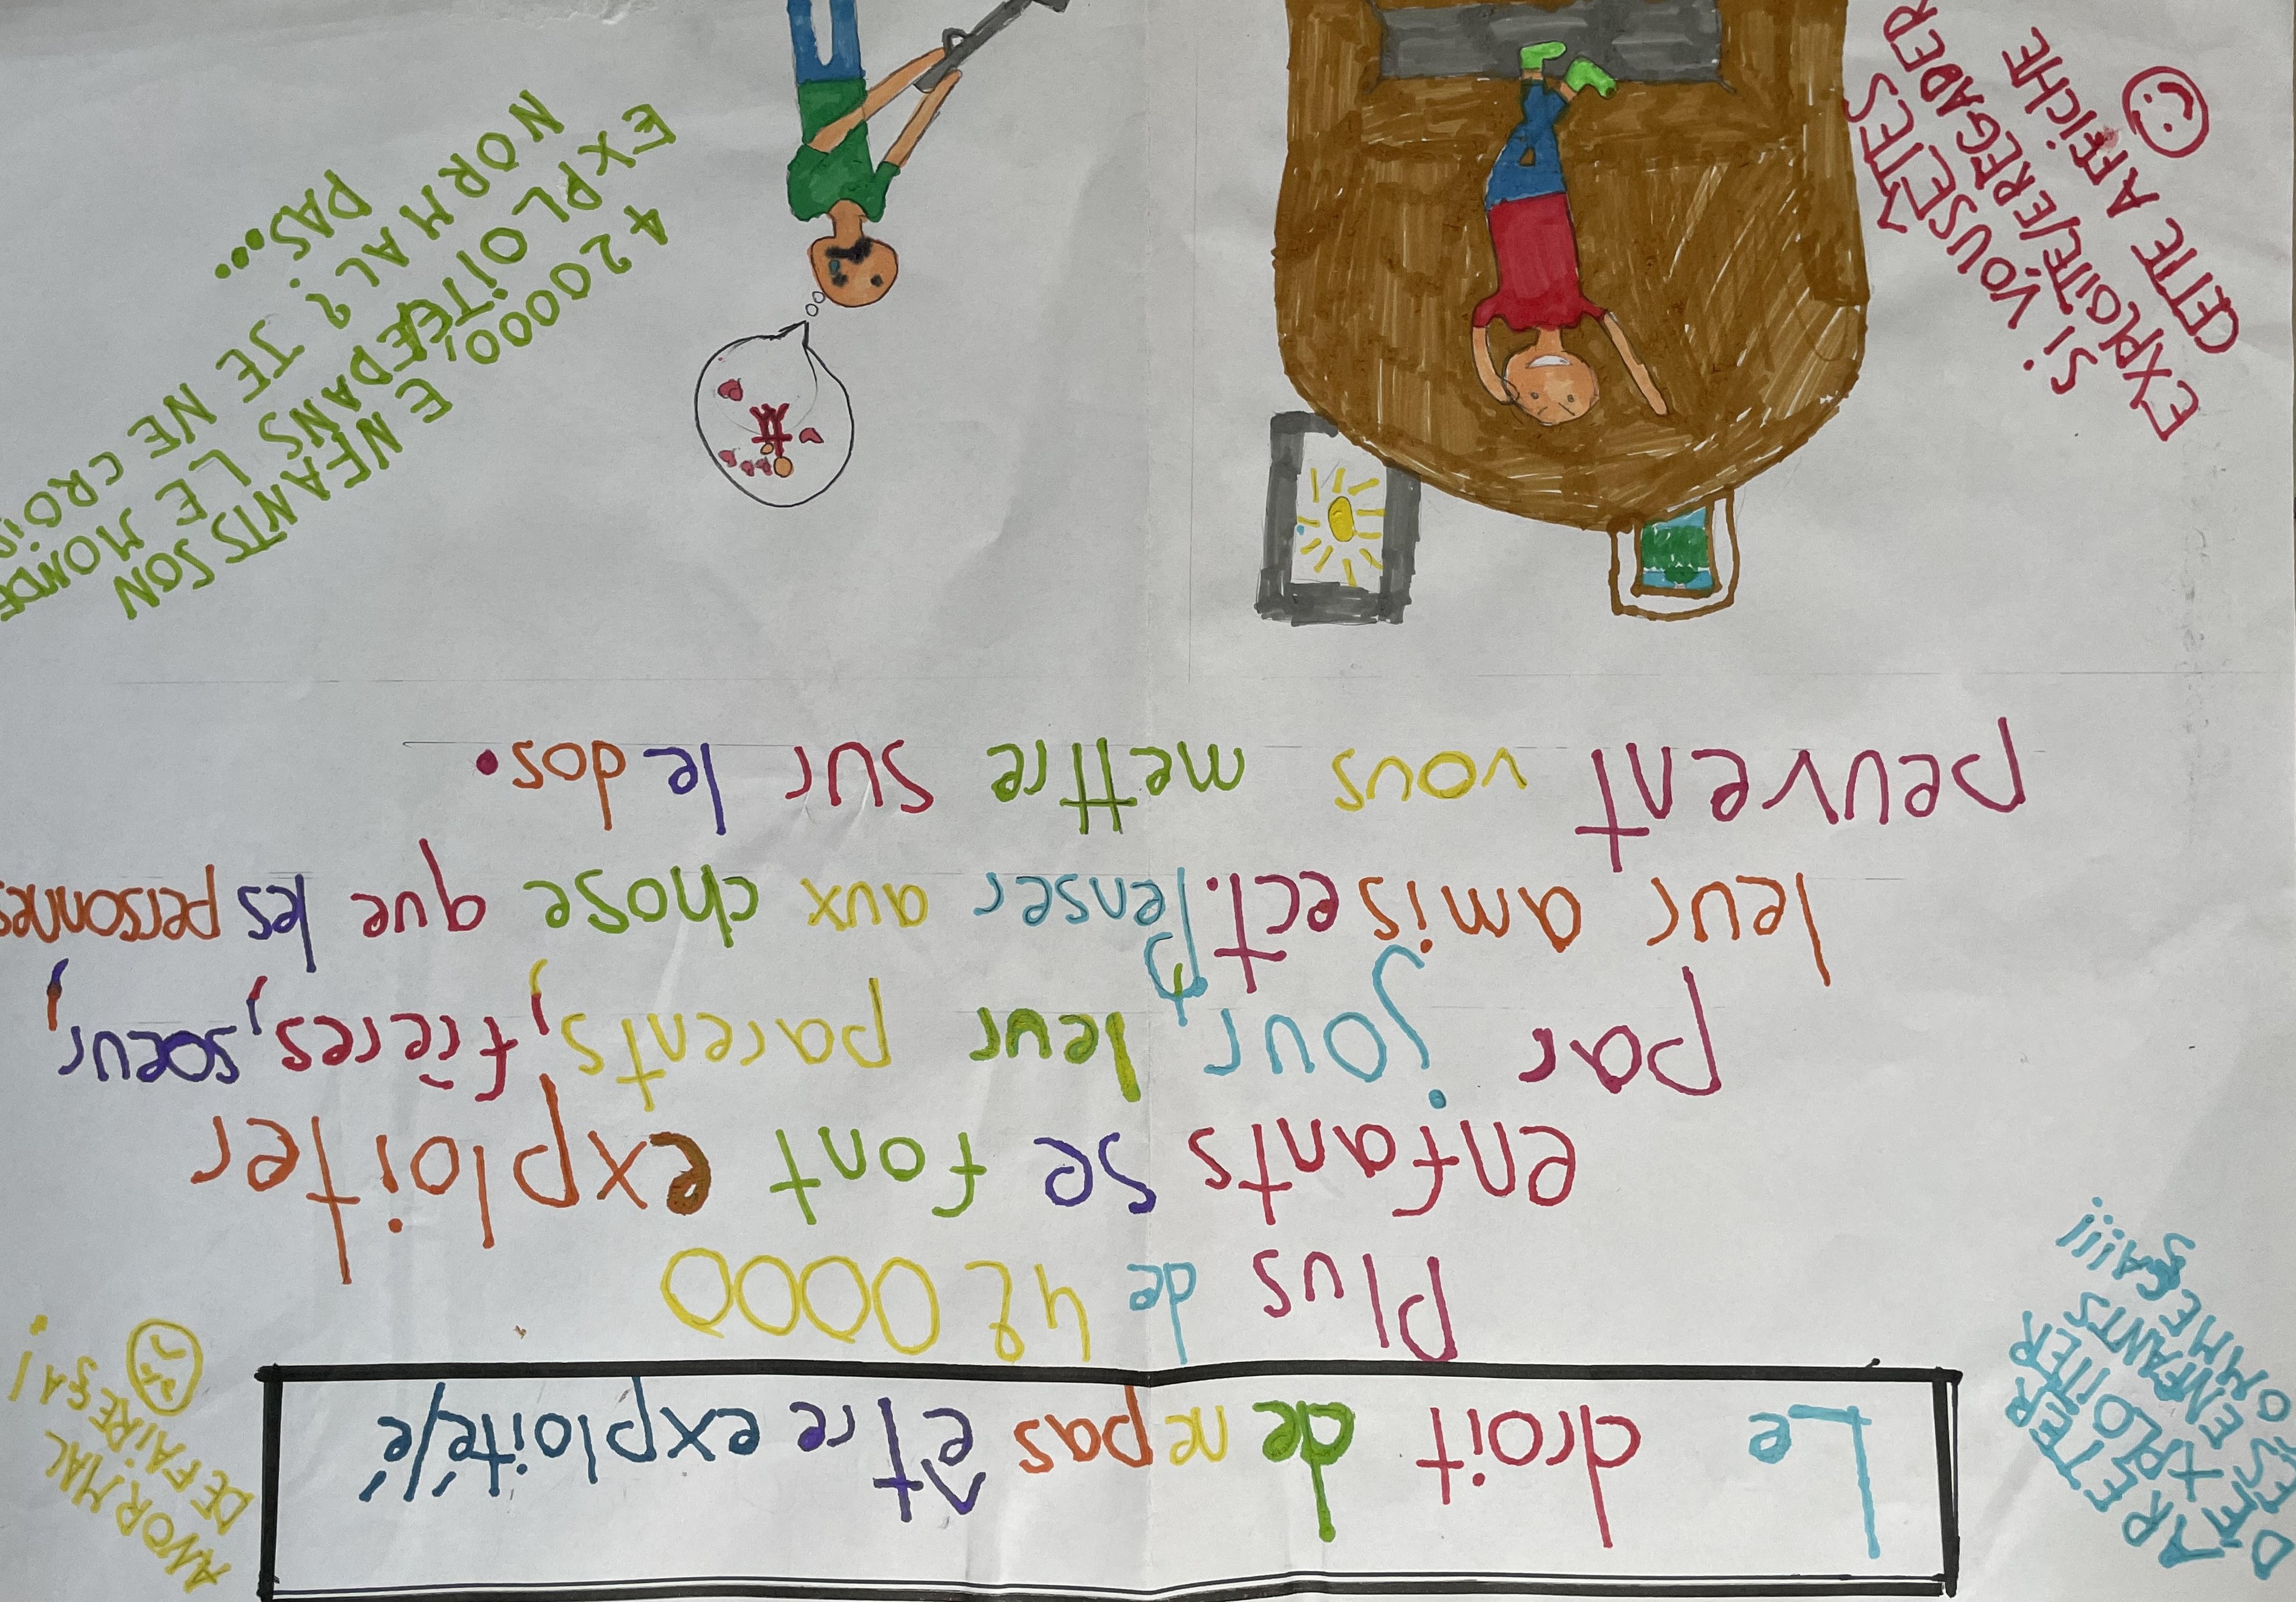 Le droit de ne pas être exploité/é
ARETER
D'EXPLOITER
DES ENFANTS
COMME ÇA!!!
ANORMAL
DE FAIRE ÇA!
Plus de 42 0000
enfants se font exploiter
par jour, leur parents, frères, soeur,
leur amis ect. Penser aux chose que les personnes
peuvent vous mettre sur le dos.
SI VOUS ÊTES
EXPLOITÉ/E REGADER
CETTE AFICHE
420000, ENFANTS SON
EXPLOITÉE DANS LE MONDE
NORMAL ? JE NE
PAS...